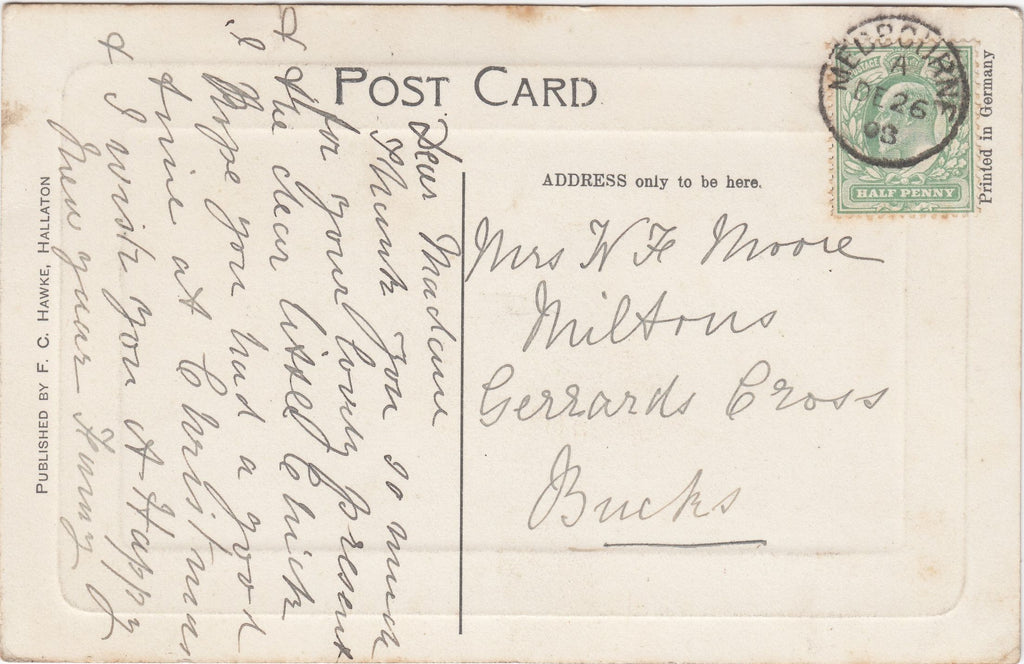 POST CARD
MEDBOURNE
A
DE 26
08
HALF PENNY
Printed in Germany
ADDRESS only to be here.
Mrs W F Moore
Miltons
Gerrards Cross
Bucks
Dear Madam
Thank you so much
for your lovely Present
& the dear little Chick
I Hope you had a good
time at Christmas
& I wish you A Happy
New year Fanny
PUBLISHED BY F. C. HAWKE, HALLATON